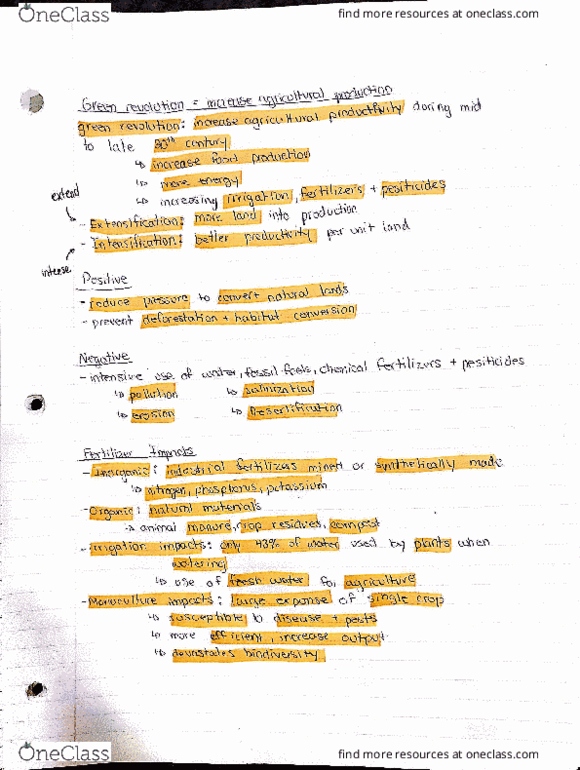 OneClass
find more resources at oneclass.com
Green revolution = increase agricultural production
green revolution: increase agricultural productivity during mid
to late 20th century
↳ increase food production
↳ more energy
↳ increasing irrigation, fertilizers + pesiticides
extend
- Extensification: more land into production
- Intensification: better productivity per unit land
intense
Positive
- reduce pressure to convert natural lands
- prevent deforestation + habitat conversion
Negative
- intensive use of water, fossil fuels, chemical fertilizers + pesiticides
↳ pollution ↳ salinization
↳ erosion ↳ Desertification
Fertilizer Impacts
- Inorganic: industrial fertilizers mined or synthetically made
↳ nitrogen, phosphorus, potassium
- Organic: natural materials
↳ animal manure, crop residues, compost
- Irrigation impacts: only 43% of water used by plants when
watering
↳ use of fresh water for agriculture
- Monoculture impacts: large expanse of single crop
↳ susceptible to disease + pests
↳ more efficient, increase output
↳ biodiversity
OneClass
find more resources at oneclass.com